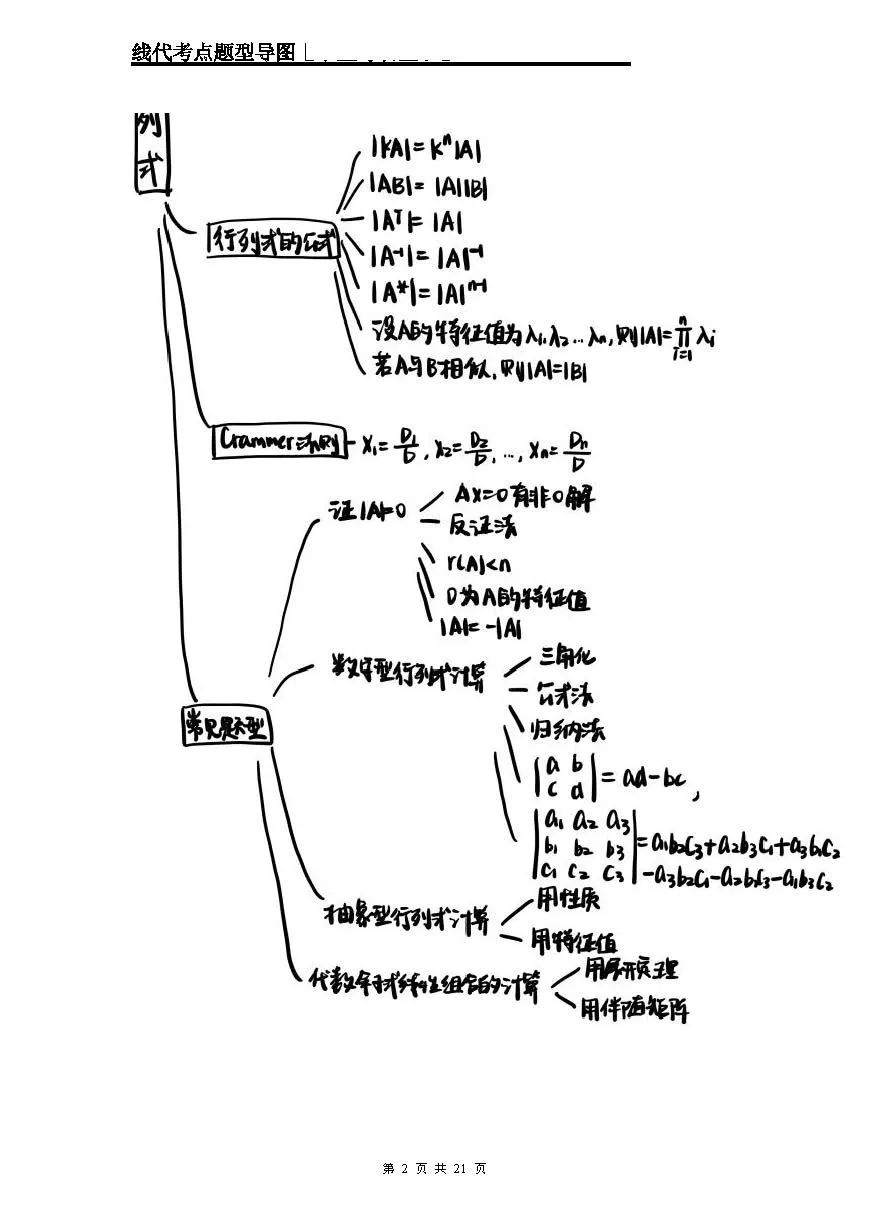 线代考点题型导图
列
式
行列式的公式
|kA|=kⁿ|A|
|AB|=|A||B|
|Aᵀ|=|A|
|A⁻¹|=|A|⁻¹
|A*|=|A|ⁿ⁻¹
设A的特征值为λ₁,λ₂…λₙ,则|A|=∏ᵢ₌₁ⁿ λᵢ
若A与B相似,则|A|=|B|
Crammer法则
x₁=D₁/D, x₂=D₂/D, …, xₙ=Dₙ/D
常见题型
证|A|=0
Ax=0有非0解
反证法
r(A)<n
0为A的特征值
|A|=-|A|
数字型行列式计算
三角化
公式法
归纳法
|a b|
|c d| = ad-bc,
|a₁ a₂ a₃|
|b₁ b₂ b₃| =a₁b₂c₃+a₂b₃c₁+a₃b₁c₂
|c₁ c₂ c₃| -a₃b₂c₁-a₂b₁c₃-a₁b₃c₂
抽象型行列式计算
用性质
用特征值
代数余子式线性组合的计算
用展开定理
用伴随矩阵
第 2 页 共 21 页